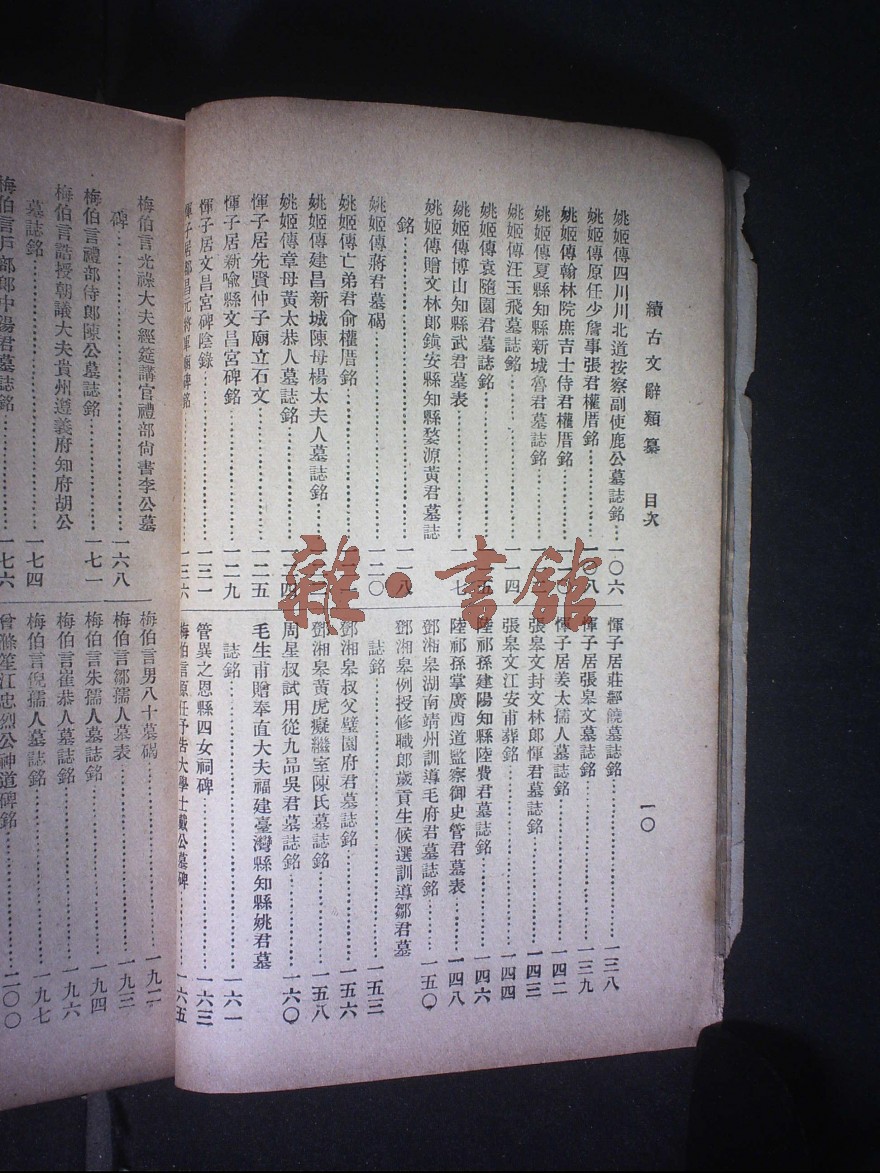 續古文辭類纂 目次
一〇
姚姬傳四川川北道按察副使鹿公墓誌銘……一〇六
姚姬傳原任少詹事張君權厝銘……一〇八
姚姬傳翰林院庶吉士侍君權厝銘……
姚姬傳夏縣知縣新城魯君墓誌銘……
姚姬傳汪玉飛墓誌銘……一一四
姚姬傳袁隨園君墓誌銘……
姚姬傳博山知縣武君墓表……一一七
姚姬傳贈文林郎鎮安縣知縣婺源黃君墓誌
銘……一一八
姚姬傳蔣君墓碣……一二〇
姚姬傳亡弟君俞權厝銘……
姚姬傳建昌新城陳母楊太夫人墓誌銘……
姚姬傳章母黃太恭人墓誌銘……
惲子居先賢仲子廟立石文……一二五
惲子居新喻縣文昌宮碑銘……一二九
惲子居文昌宮碑陰錄……一三一
惲子居都昌元將軍廟碑銘……一三六
惲子居莊經饒墓誌銘……一三八
惲子居張皋文墓誌銘……一三九
惲子居姜太孺人墓誌銘……一四二
張皋文封文林郎惲君墓誌銘……一四三
張皋文江安甫葬銘……一四四
陸祁孫建陽知縣陸費君墓誌銘……一四六
陸祁孫掌廣西道監察御史管君墓表……一四八
鄧湘皋湖南靖州訓導毛府君墓誌銘……一五〇
鄧湘皋例授修職郎歲貢生候選訓導鄒君墓
誌銘……一五三
鄧湘皋叔父璧園府君墓誌銘……一五六
鄧湘皋黃虎癡繼室陳氏墓誌銘……一五八
周星叔試用從九品吳君墓誌銘……一六〇
毛生甫贈奉直大夫福建臺灣縣知縣姚君墓
誌銘……一六一
管異之恩縣四女祠碑……一六三
梅伯言原任予告大學士戴公墓碑……一六五
梅伯言光祿大夫經筵講官禮部尚書李公墓
碑……一六八
梅伯言禮部侍郎陳公墓誌銘……一七一
梅伯言誥授朝議大夫貴州遵義府知府胡公
墓誌銘……一七四
梅伯言戶部郎中湯君墓誌銘……一七六
梅伯言男八十墓碣……一九二
梅伯言鄒孺人墓表……一九三
梅伯言朱孺人墓誌銘……一九四
梅伯言崔恭人墓誌銘……一九六
梅伯言倪孺人墓誌銘……一九七
曾滌笙江忠烈公神道碑銘……二〇〇
雜·書館